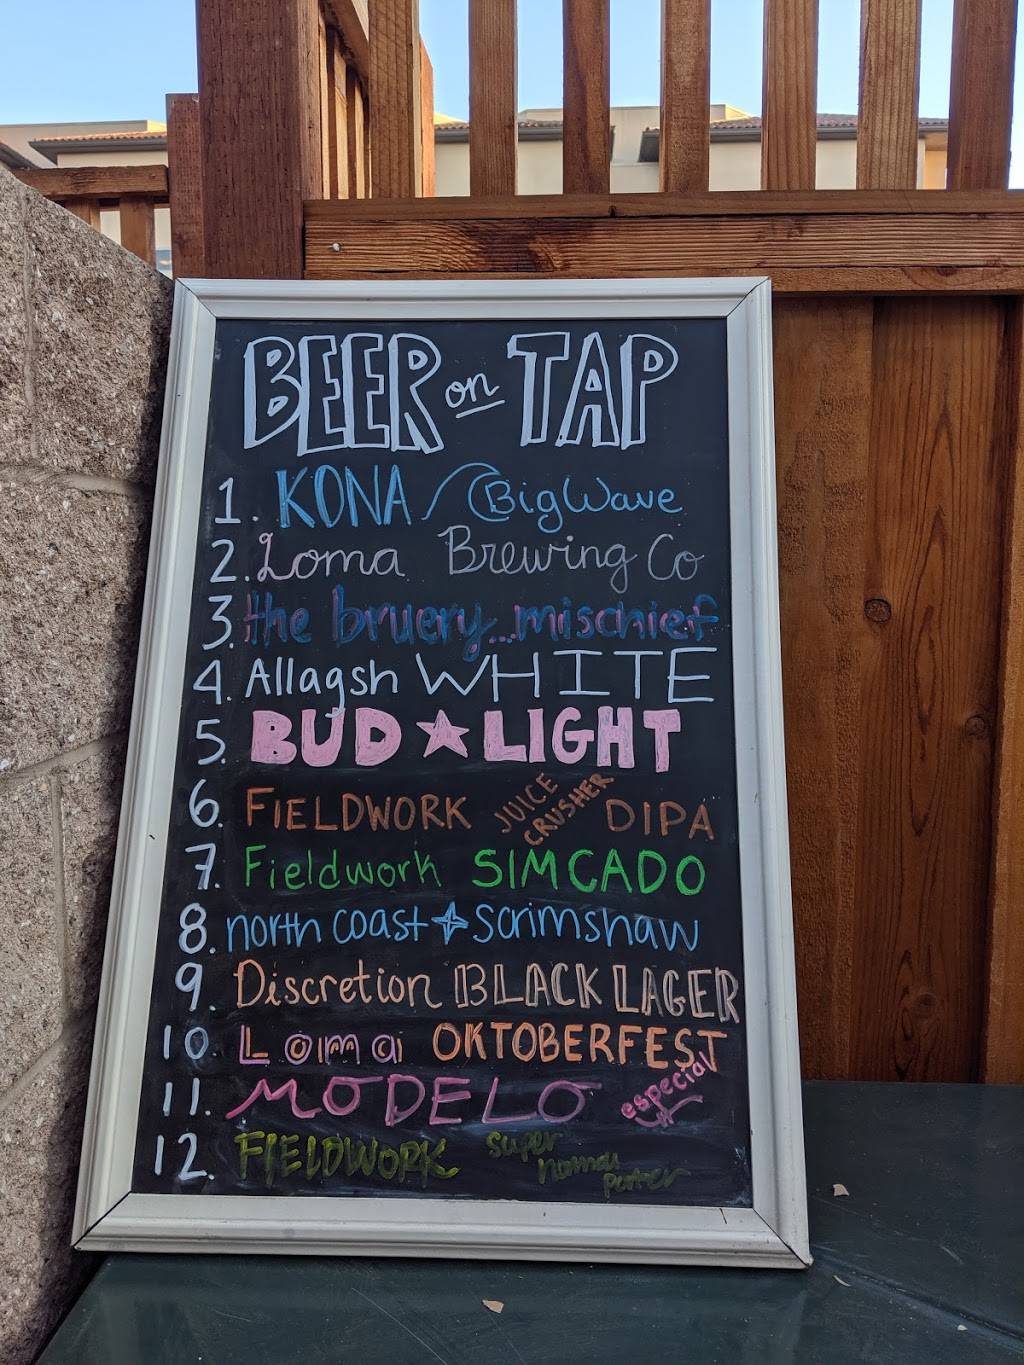 BEER on TAP
1. KONA BigWave
2. Loma Brewing Co
3. the bruery...mischief
4. Allagsh WHITE
5. BUD ★ LIGHT
6. FIELDWORK JUICE CRUSHER DIPA
7. Fieldwork SIMCADO
8. north coast scrimshaw
9. Discretion BLACK LAGER
10. Loma OKTOBERFEST
11. MODELO especial
12. FIELDWORK super normal porter